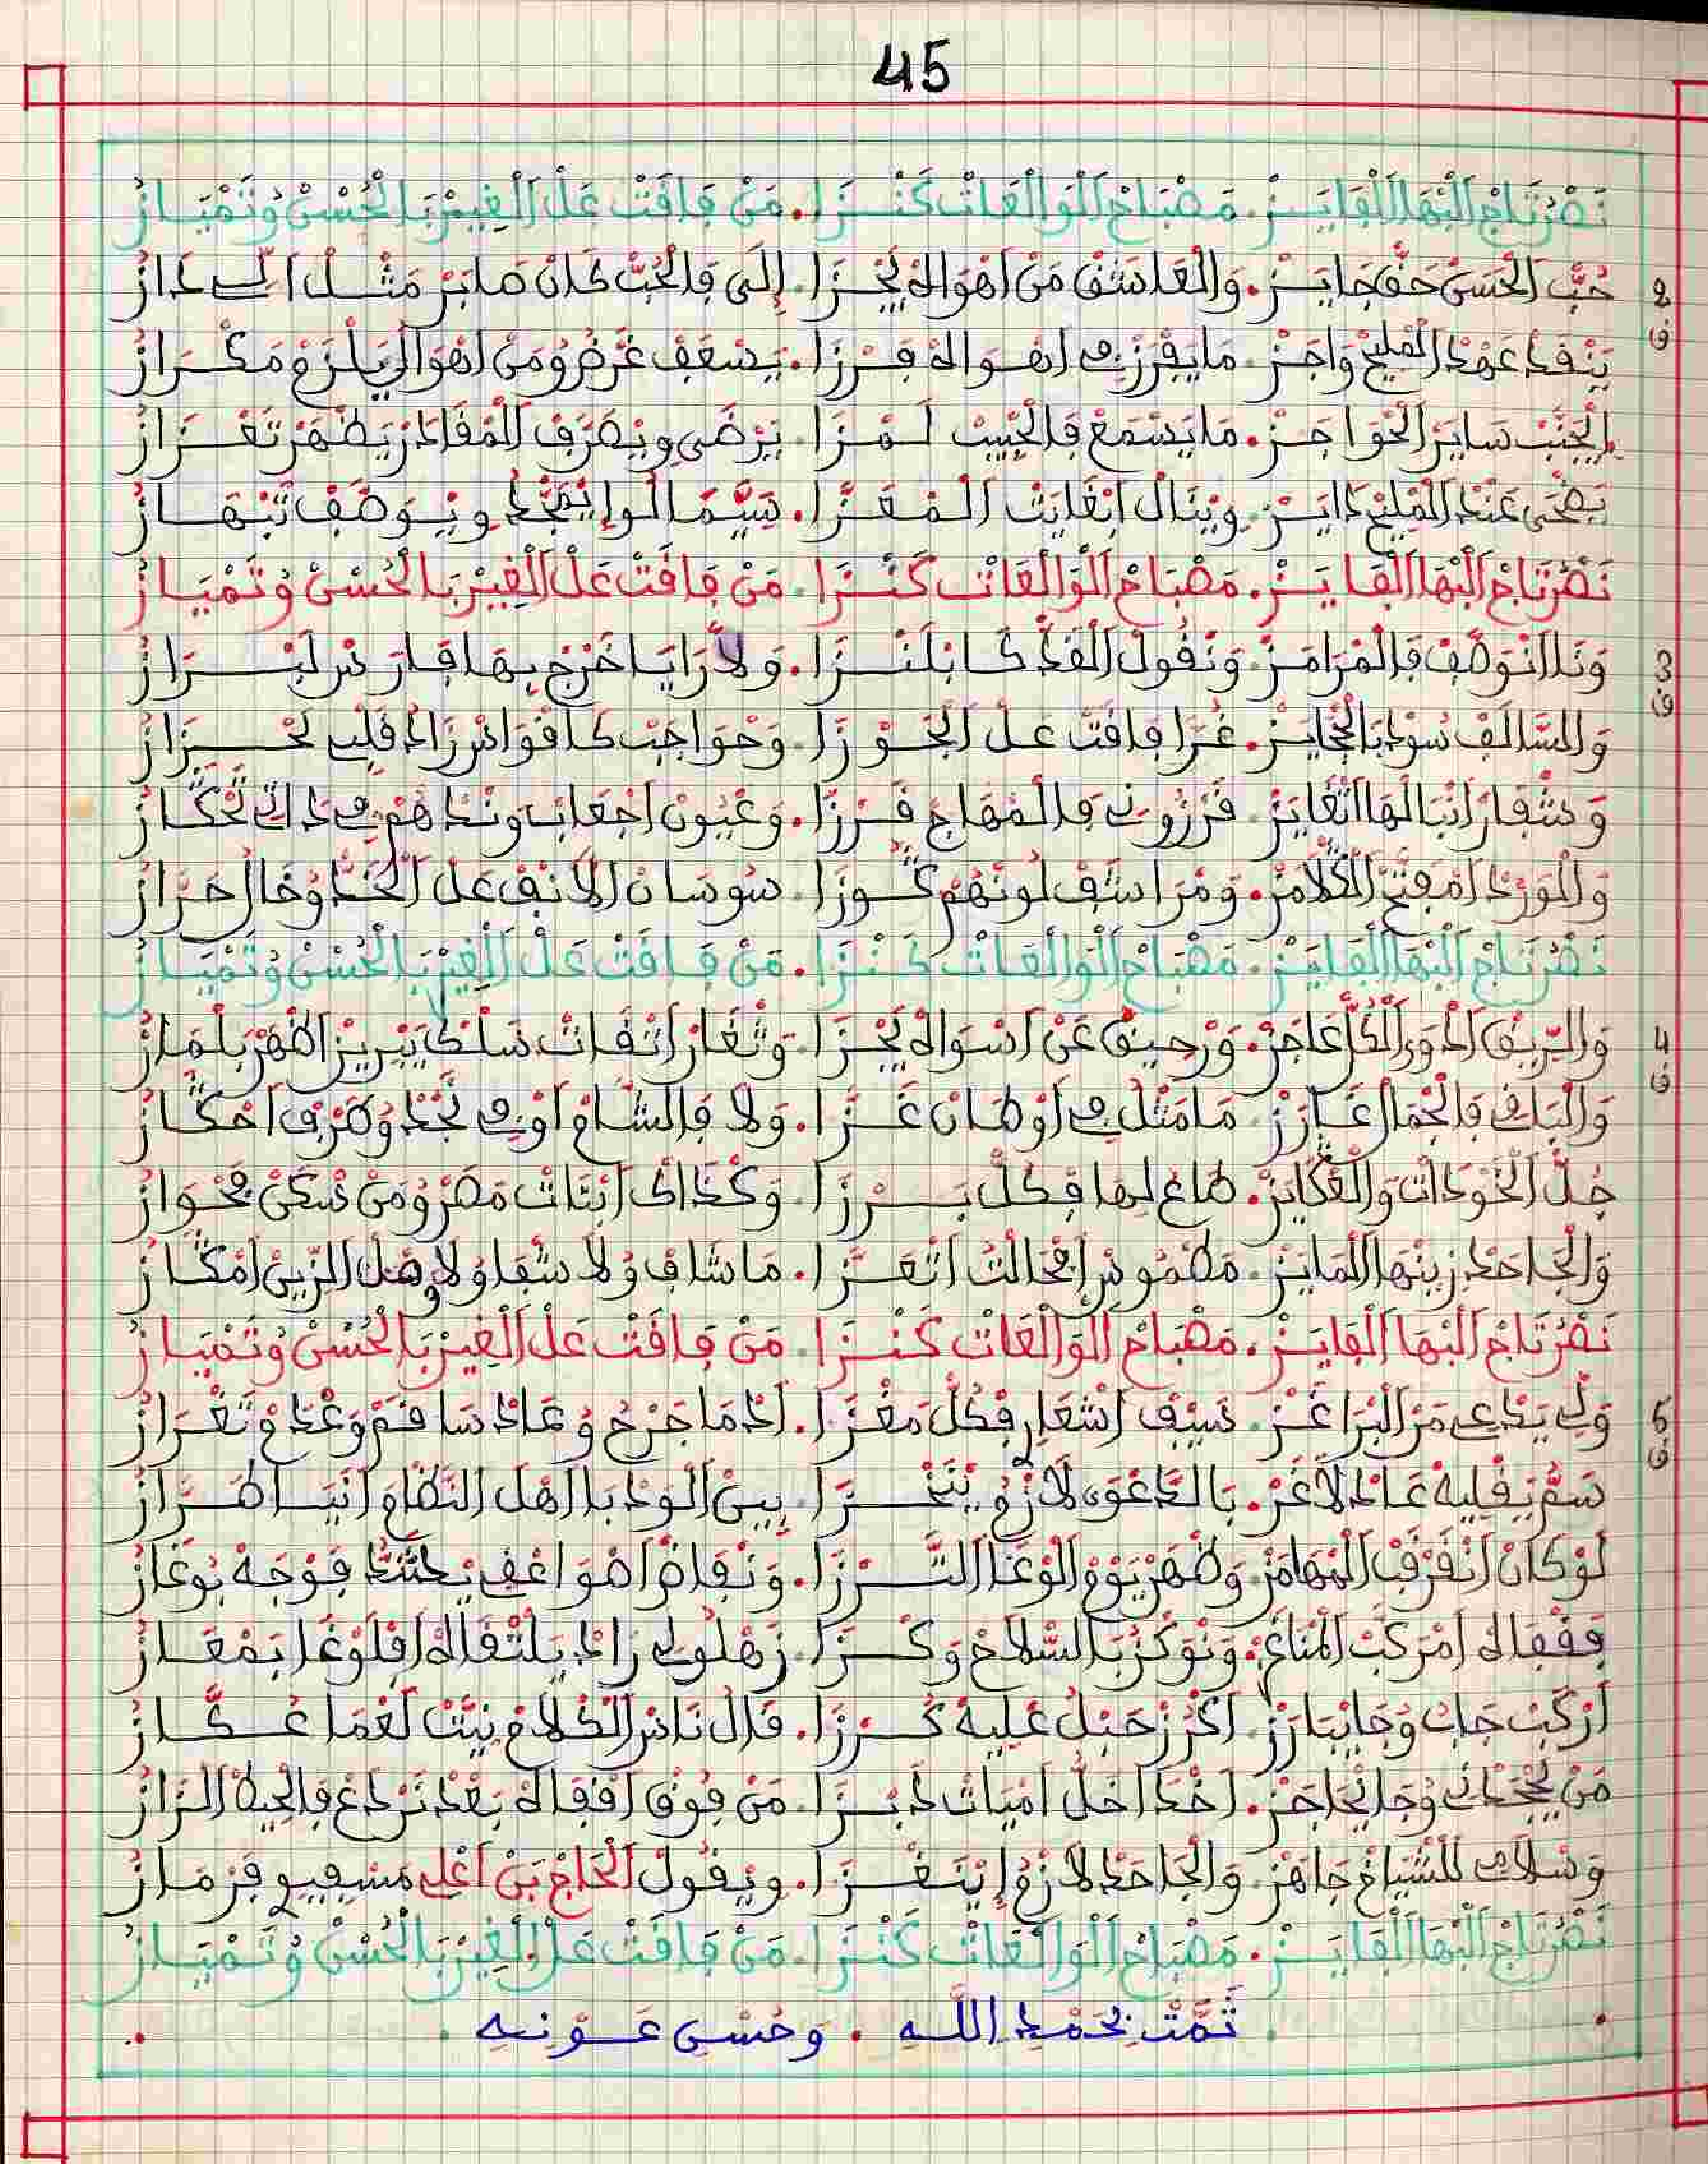 45
نَصْرْ تَاجْ اَلْبْهَا الْفَايَـزْ. مَصْبَاحْ اَلْوَالْعَاتْ كَنْـزَا. مَنْ فَاقَتْ عَلْ اَلْغِيرْ بَالْحُسْنْ وُتَمْيَـازْ
2 حُبّْ اَلْحَسَنْ حَقّْ جَايَـزْ. وَالْعَاشَقْ مَنْ اَهْوَاهْ يَحْـزَا. إِلَى فَالْحُبّْ كَانْ صَابَرْ مَثْـلْ اَلِّي دَازْ
ف يَنْفَدْ عَهْدْ اَلْمْلِيحْ وَاجَـزْ. مَا يَفْرَزْ فِي اَهْـوَاهْ فَـرْزَا. يَصْعَفْ غَرْضُ وُمَنْ اَهْوَا لِّي يَلْزَمْ مَكْـرَازْ
اِيجَنَّبْ سَايَرْ الْحْوَاجَـزْ. مَا يَسْمَعْ فَالْحْبِيبْ لَـمْـزَا. يَرْضَى وِيْصَرَّفْ اَلْمْفَادَزْ يَظْهَرْ تَغْـزَازْ
يَضْحَى عَنْدْ اَلْمْلِيحْ دَايَـزْ. وِيْنَالْ اَبْغَايْتْ اَلْـمْـعَـزَّا. سِيَّمَا لُّوا اِيْمَجَّدْ وِيْـوَصَّفْ تَبْـهَـازْ
نَصْرْ تَاجْ اَلْبْهَا الْفَايَـزْ. مَصْبَاحْ اَلْوَالْعَاتْ كَنْـزَا. مَنْ فَاقَتْ عَلْ اَلْغِيرْ بَالْحُسْنْ وُتَمْيَـازْ
3 وَنَايَا نْوَصَّفْ فَالْمْرَامَـزْ. وَنْقُولْ اَلْقَدّْ كَـا بْلَنْـزَا. وَلَّا رَايَا خَرْجْ بِـهَـا فَـارَسْ لَبْـرَازْ
ف وَالسَّالَفْ سُودْ بَالْحْجَايَـزْ. غُرَّا فَاقَتْ عَـلْ اَلْجَـوْزَا. وَحْوَاجَبْ كَـاقْوَاسْ زَادُ قَلْبِي تَحْـزَازْ
وَشْفَارْ اَنْبَالْهَا اَنْغَايَزْ. غَرْزُونِي فَالْمْهَاجْ غَـرْزَا. وَعْيُونْ اَجْعَابْ وِنْدَاهُمْ فِي دَاتِي تَحْكَـازْ
وَالْوَرْدْ اَمْفَتَّحْ اَلْكْلَامَزْ. وَمْرَاشَفْ لُونْهُمْ كْـوزَا. سُوسَانْ اَلْاَنْفْ عَلْ اَلْخَدّْ وُخَالْ حَرَّازْ
نَصْرْ تَاجْ اَلْبْهَا الْفَايَـزْ. مَصْبَاحْ اَلْوَالْعَاتْ كَنْـزَا. مَنْ فَاقَتْ عَلْ اَلْغِيرْ بَالْحُسْنْ وُتَمْيَـازْ
4 وَالرِّيقْ اَدْوَا لْكُلّْ عَاجَزْ. وَرْحِيقْ عَنْ اَسْوَاهْ يَحْـزَا. وَثْغَارْ اَتْقَاتْ سَلْكْ يَبْرِيزْ اَظْهَرْ بَلْمَازْ
ف وَالْبَاقِي فَالْجْمَالْ غَـارَزْ. مَا مَثْلُ فِي اَوْطَـانْ غَـزَّا. وَلَا فَالشَّامْ اَوْ فِي نَجْدْ وُطَرْفْ اَحْكَـازْ
جُلّْ اَلْخَوْدَاتْ وَالْعْكَايَزْ. طَاعْ لِهَـا فْكُلّْ بَـرْزَا. وَكْذَاكْ اَبْنَاتْ مَصْرْ وُمَنْ سَكَنْ مَحْـوَازْ
وَالْجَاحَدْ زِينْهَا اَلْمَايَزْ. مَطْمُوسْ اَفْحَالَتْ اَتْعَـزَّا. مَا شَافْ وُلَا شْفَا وُلَا وْصَلْ الزِّينْ اَمْكَـازْ
نَصْرْ تَاجْ اَلْبْهَا الْفَايَـزْ. مَصْبَاحْ اَلْوَالْعَاتْ كَنْـزَا. مَنْ فَاقَتْ عَلْ اَلْغِيرْ بَالْحُسْنْ وُتَمْيَـازْ
5 وَلِّي يَدْعِي مَنْ اَلْبْرَاغَـزْ. سَيْفْ اَشْعَارِ فْكُلّْ مَغْـزَا. اَدْمَا جَرْحُ وُعَادْ سَاقَمْ وَعْدْمُ وْتَغْـرَازْ
ف سَمّْ يَفْلِيهْ عَادْ لَاغَزْ. بَالدَّعْوَى لَازْمُ يْنَخْـزَا. بِينْ اَلْوَدْبَا اَهْلْ النّْظَامْ اَنْيَـا طَـرَّازْ
لَوْ كَانْ اَنْفَرْقْ اَلْبْهَامَزْ. وَظْهَرْ يُومْ اَلْوْغَا التَّـرْزَا. وَنْفَاضْ اَضْوَا عْفِي يْحَشَّدْ فَوْجَهْ بُوغَازْ
فَقْفَاهْ اَمْرَكَّبْ اَلْمْنَاغَزْ. وَنْوَكْزُ بَالسّْلَاحْ وَكْـزَا. زَهْلُولِي زَادْ يَلْتْقَاهْ اَفْلَوْغَا بَمْعَـازْ
اَرْكَبْ جَابْ وُجَا يْبَارَزْ. اَكْرَزْ حَبْلُ عْلِيهْ كَـرْزَا. قَالْ نَاسْ الْكْلَامْ نِيَّتْ لَعْمَا عُـكَّـازْ
مَنْ يَجْحَدْنِي وُجَا يْحَاجَزْ. اَخْدَا خَلّْ اَمْيَاتْ دَبْـزَا. مَنْ فُوقْ اَقْفَاهْ بَعْدْ نَرْدَعْ فَالْحِيطْ اَلْزَازْ
وَسْلَامِي لَلشّْيَاخْ جَاهَزْ. وَالْجَاحَدْ لَازْمُ اِيْنَـغْـزَا. وِيْقُولْ اَلْحَاجْ بَنْ اَعْلِي مَسْفِيوِي فَرْمَـازْ
نَصْرْ تَاجْ اَلْبْهَا الْفَايَـزْ. مَصْبَاحْ اَلْوَالْعَاتْ كَنْـزَا. مَنْ فَاقَتْ عَلْ اَلْغِيرْ بَالْحُسْنْ وُتَمْيَـازْ
تَمَّتْ بِحَمْدِ اللَّـهِ. وَحُسْنِ عَـوْنِـهِ.